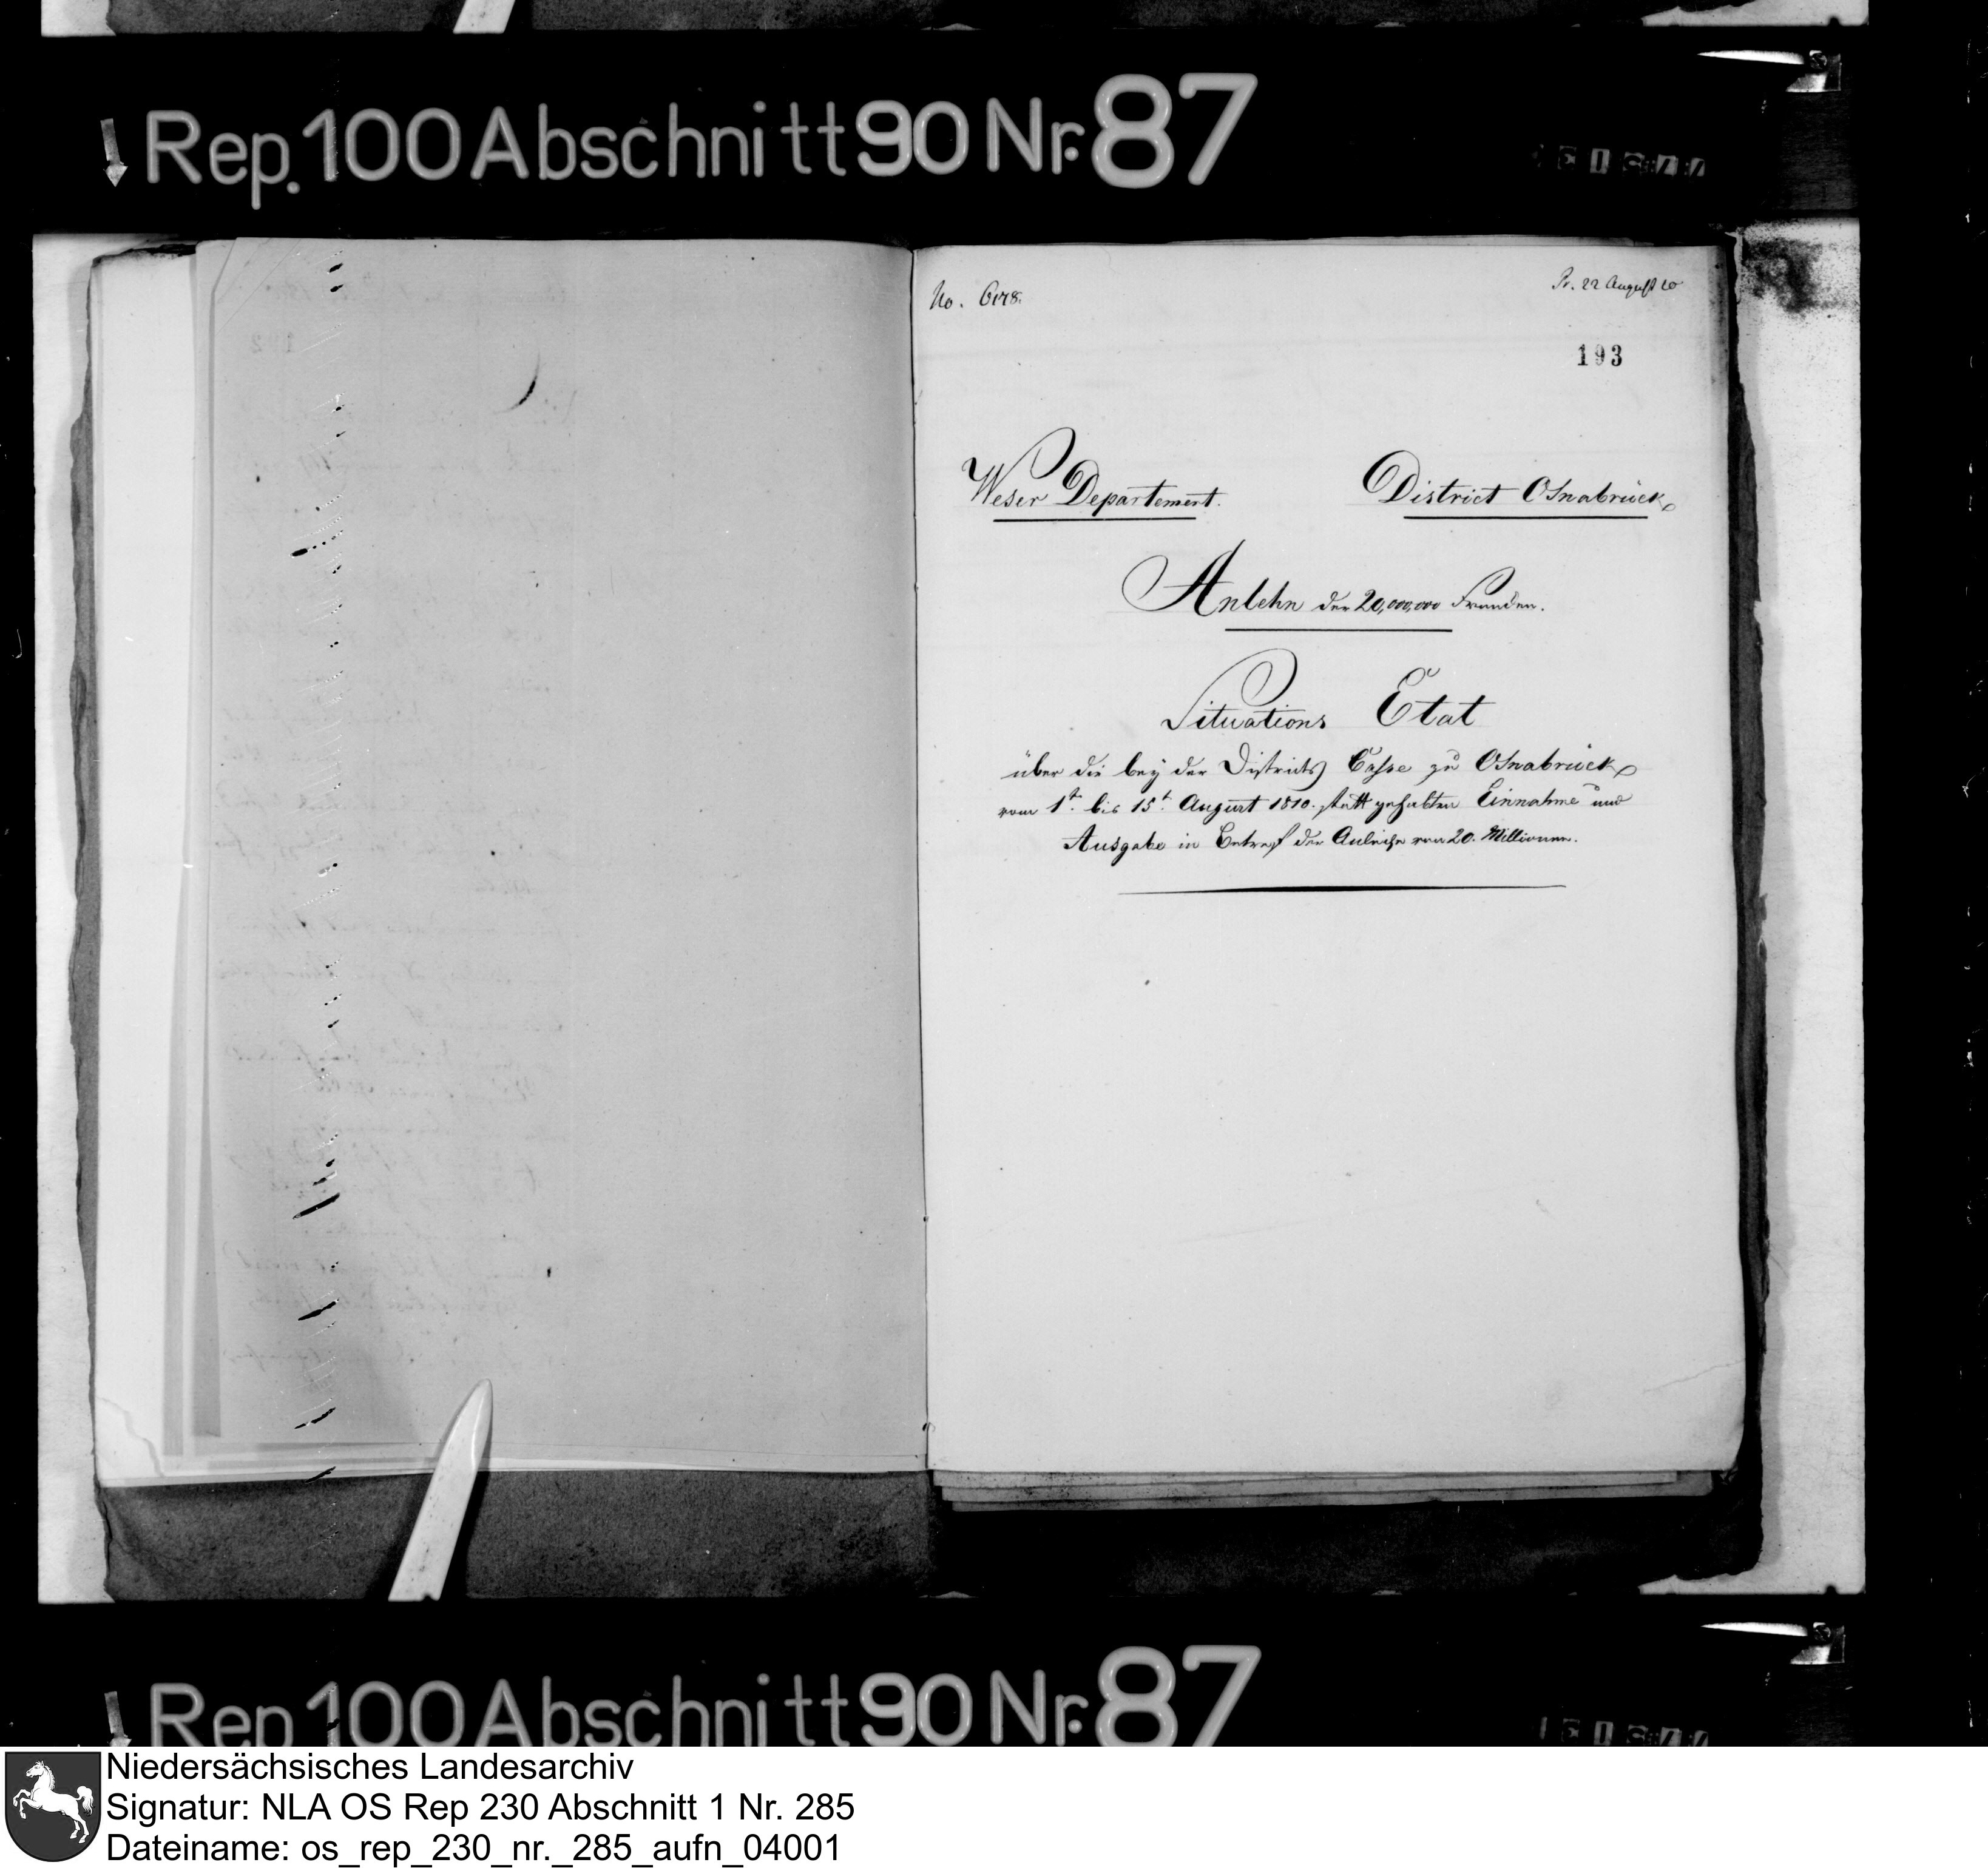 Rep. 100 Abschnitt 90 Nr. 87
No. 6178.
Pr. 22 August 10
193
Weser Departement.
District Osnabrück
Anlehn der 20,000,000 Franken.
Situations Etat
über die bey der Districts Casse zu Osnabrück
vom 1t. bis 15t. August 1810. statt gehabten Einnahme und
Ausgabe in Betreff der Anleihe von 20. Millionen.
Rep. 100 Abschnitt 90 Nr. 87
Niedersächsisches Landesarchiv
Signatur: NLA OS Rep 230 Abschnitt 1 Nr. 285
Dateiname: os_rep_230_nr._285_aufn_04001